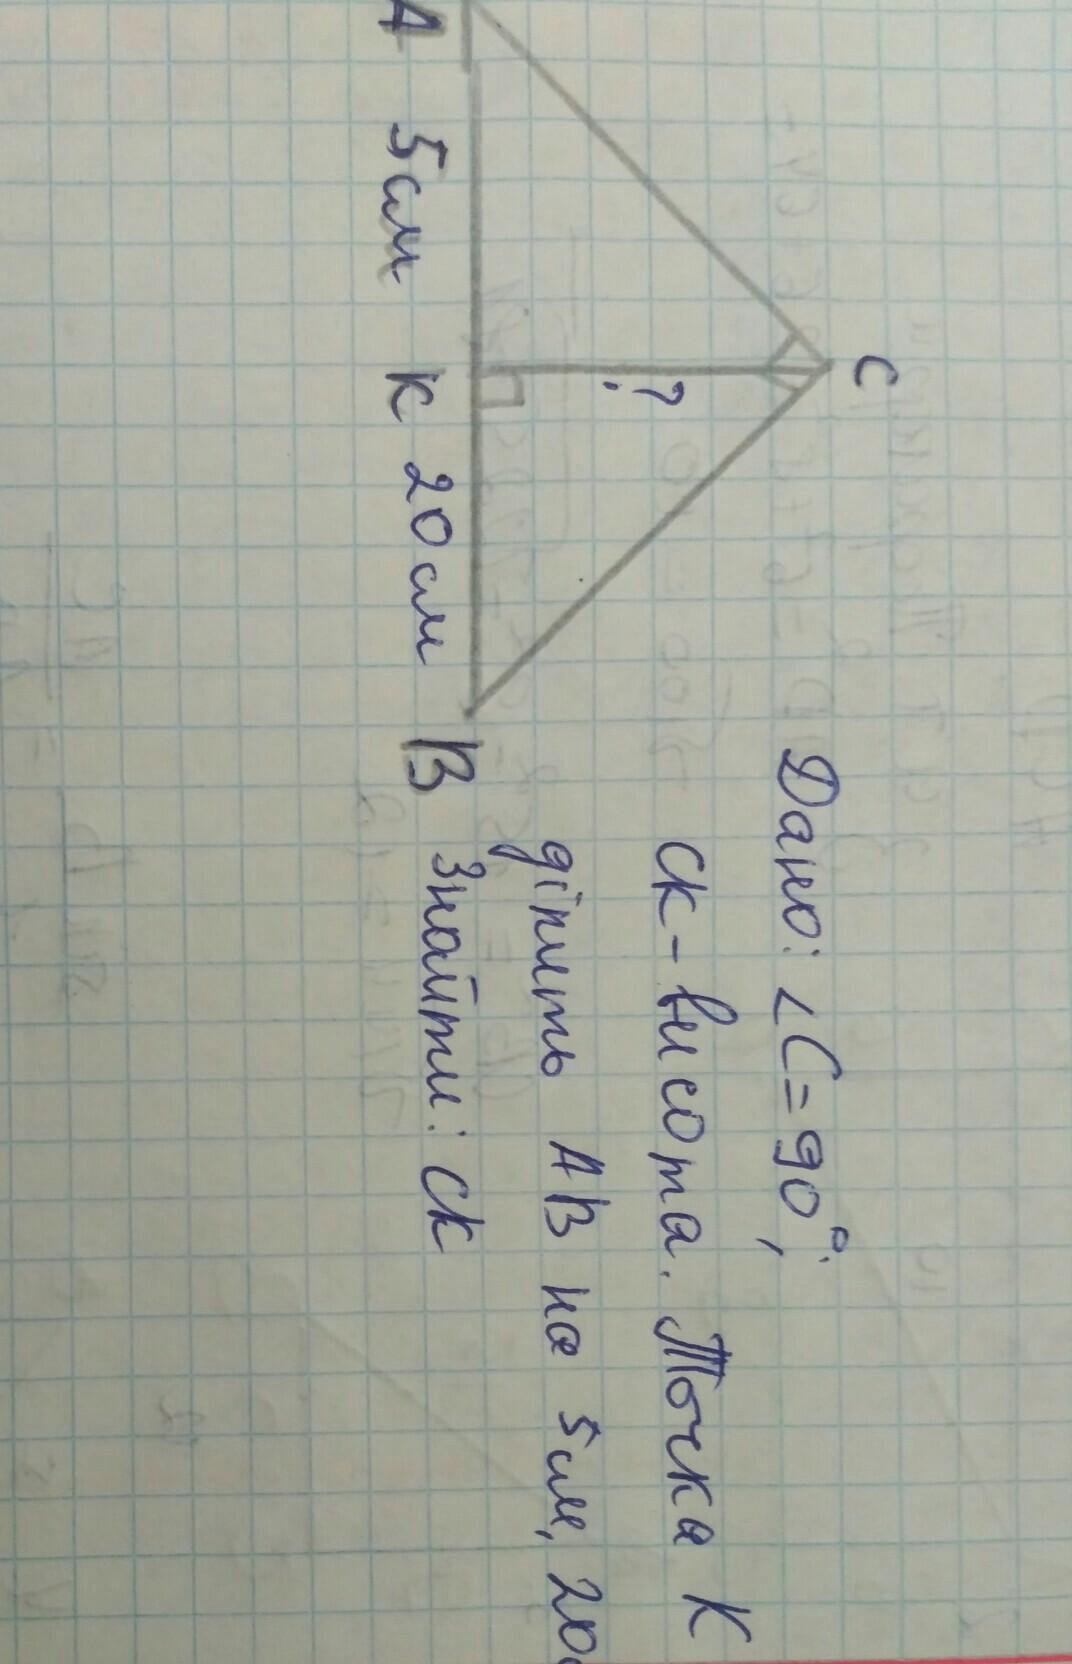 C
?
A 5см К 20см В
Дано: ∠C=90°;
СК-висота. Точка К
ділить АВ на 5см, 20
Знайти: СК